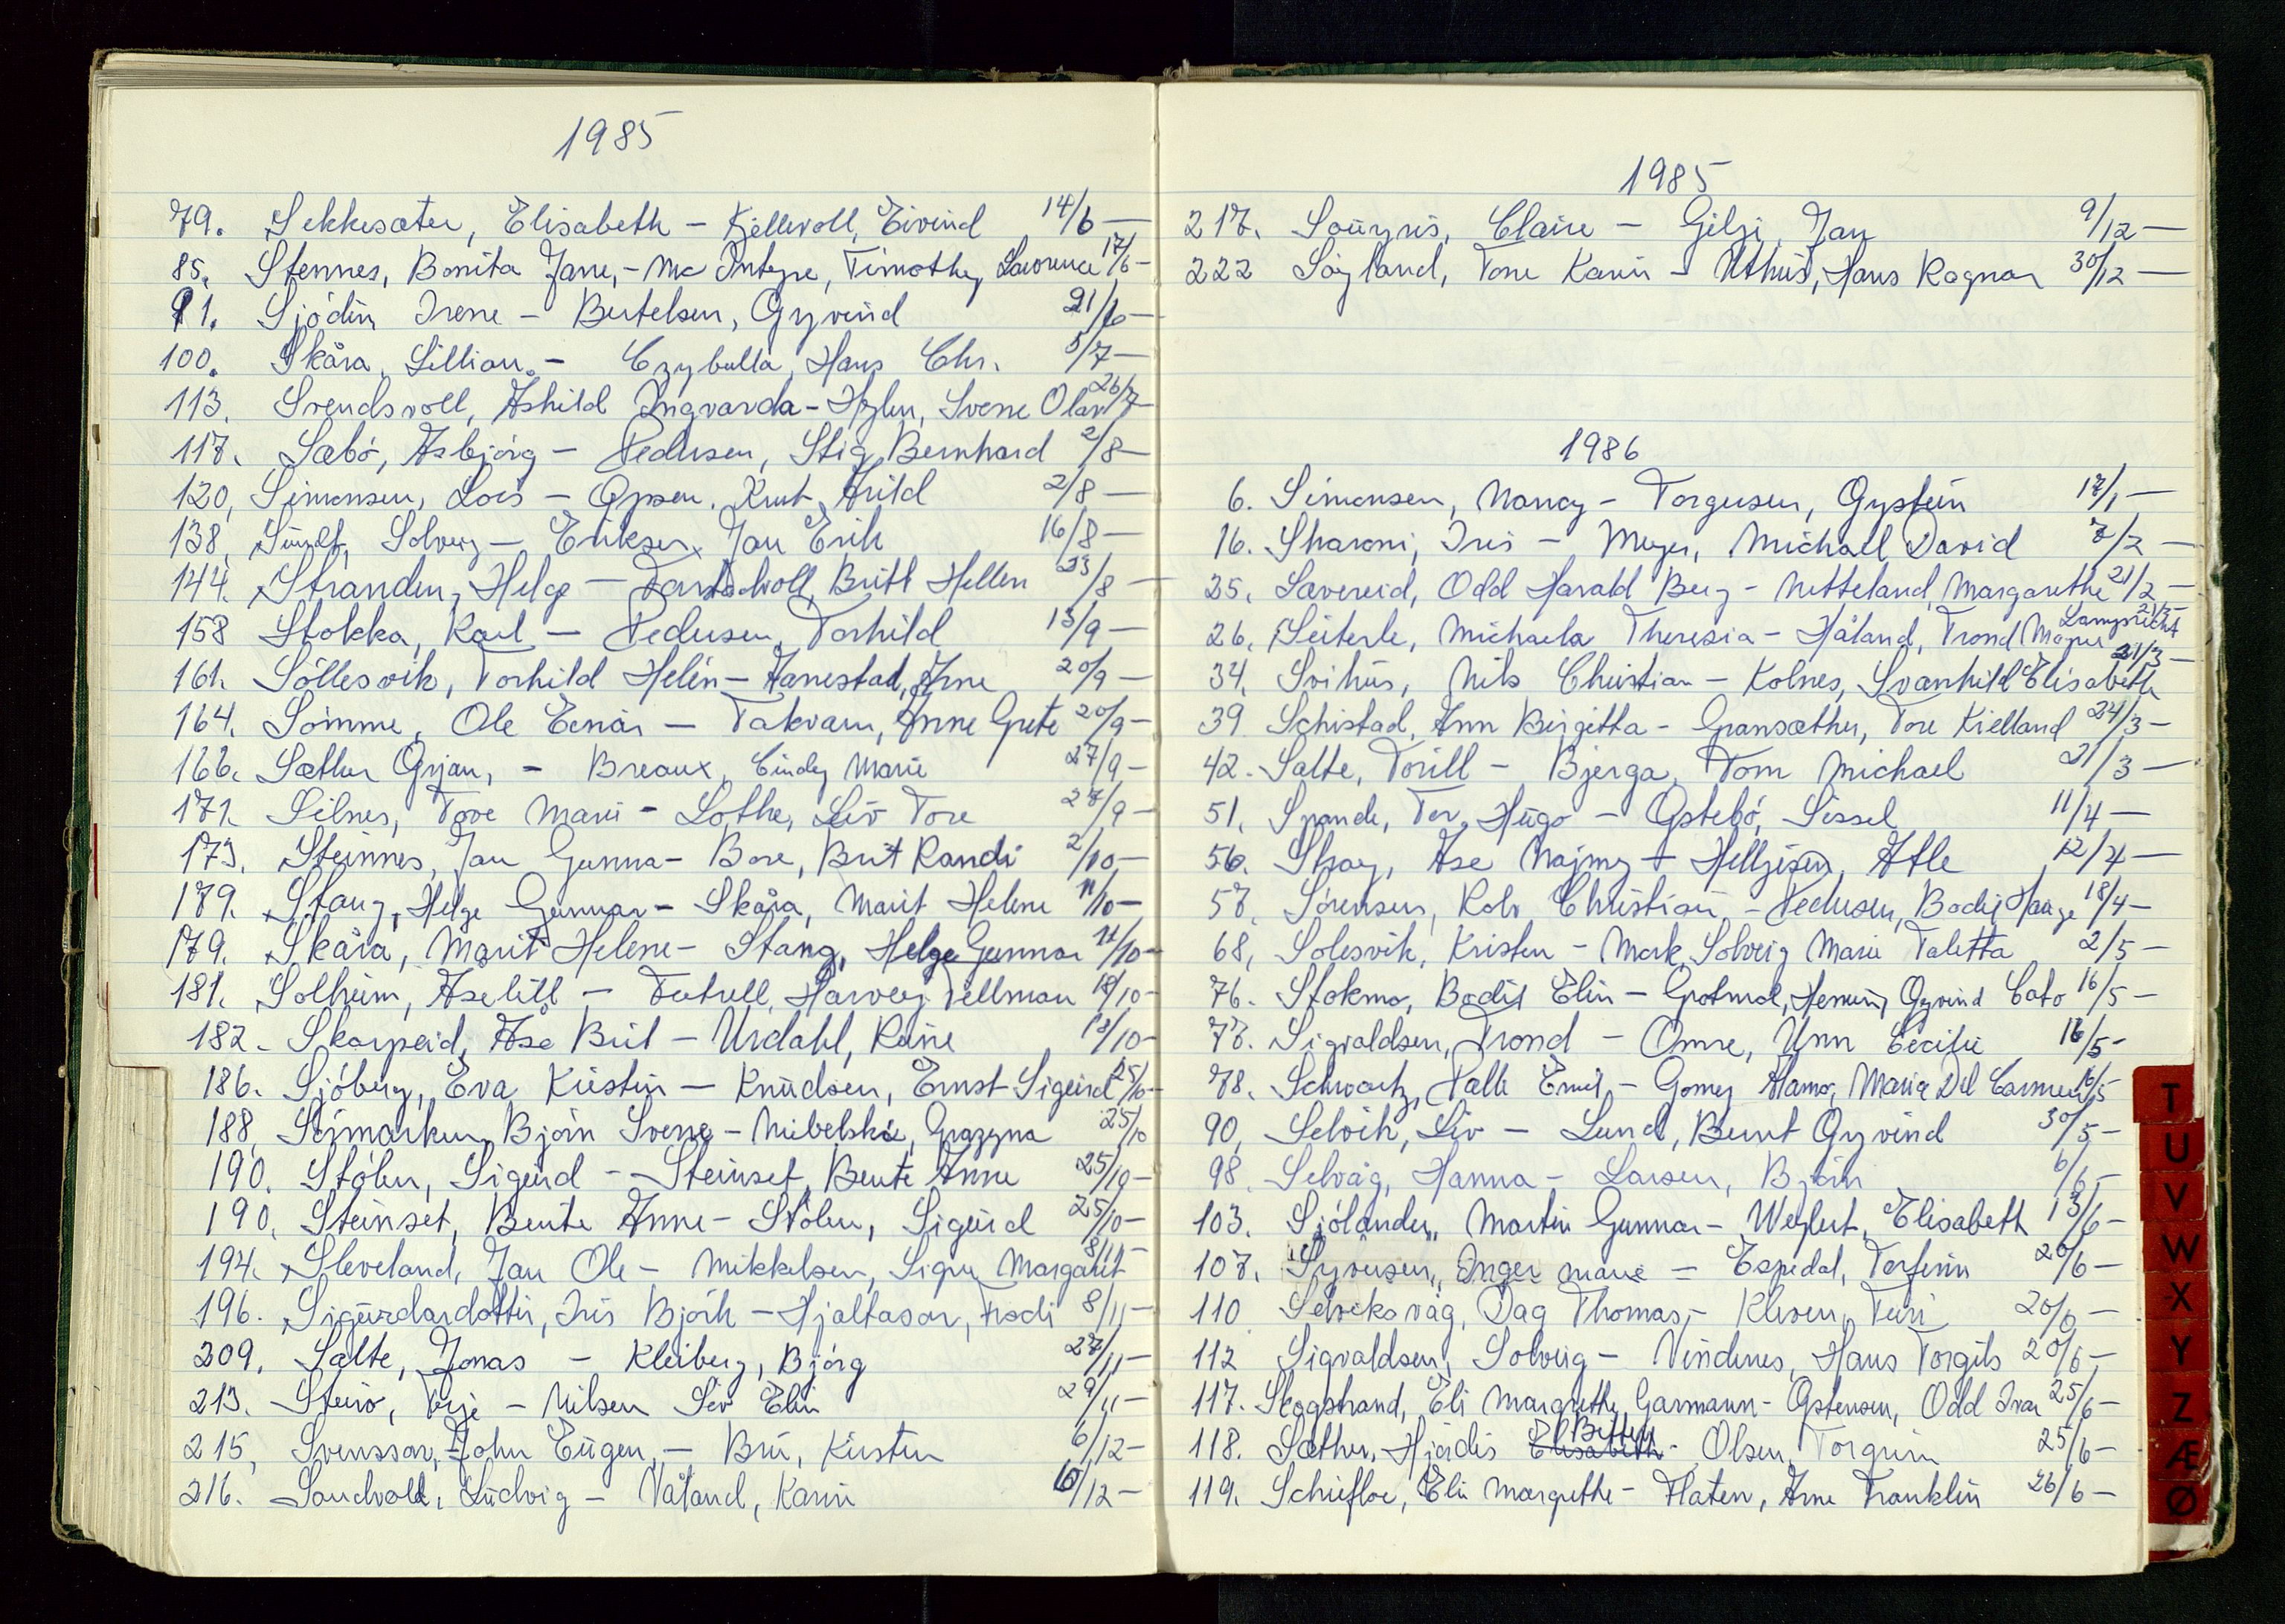 1985
79. Sekkesæter, Elisabeth - Kjellevoll, Eivind 14/6 -
85. Stennes, Bonita Jane, - Mc Intyre, Timothy Lawrence 17/6 -
91. Sjödin Irene - Bertelsen, Øyvind 21/6 -
100. Skåra, Lillian. - Czybulla, Hans Chr. 5/7 -
113. Svendsvoll, Åshild Ingvarda - Hylen, Sverre Olav 26/7 -
117. Sæbö, Asbjörg - Pedersen, Stig Bernhard 2/8 -
120, Simonsen, Lois - Opsen, Knut Arild 2/8 -
138, Sundt, Solveig - Eriksen, Jan Erik 16/8 -
144. Stranden, Helge - Britt Hellen 23/8 -
158 Stokka, Karl - Pedersen, Torhild 13/9 -
161. Söllesvik, Torhild Helén - Hanestad, Arne 20/9 -
164. Sömme, Ole Einar - Takvam, Anne Grete 20/9 -
166. Sæther Ørjan, - Breaux, Cindy Marie 27/9 -
171. Silnes, Tove Marie - Lothe, Leiv Tore 27/9 -
173. Steinnes, Jan Gunnar - Bore, Brit Randi 2/10 -
179. Stang, Helge Gunnar - Skåra, Marit Helene 11/10 -
179. Skåra, Marit Helene - Stang, Helge Gunnar 11/10 -
181. Solheim, Aselill - Harvey Tellman 18/10 -
182. Skarpeid, Åse Brit - Urdahl, Reine 18/10 -
186. Sjöberg, Eva Kirstin - Knudsen, Ernst Sigurd 25/10 -
188, Sörmarken, Björn Sverre - Grazyna 25/10
190. Stölen, Sigurd - Steinset, Bente Anne 25/10 -
190, Steinset, Bente Anne - Stölen, Sigurd 25/10 -
194. Sleveland, Jan Ole - Mikkelsen, Signe Margaret 8/11 -
196. Sigurdardottir, Iris Björk - Hjaltason, Frodi 8/11 -
209. Salte, Jonas - Kleiberg, Björg 27/11 -
213. Steirö, Terje - Nilsen Siv Elin 29/11 -
215, Svensson, John Eugen, - Bru, Kirsten 6/12 -
216. Sandvold, Ludvig - Våland, Karin 10/12 -
1985
217. Souyris, Claire - Gilje, Jan 9/12 -
222 Søyland, Tone Karin - Uthus, Hans Ragnar 30/12 -
1986
6. Simonsen, Nancy - Torgersen, Øystein 17/1 -
16. Sharoni, Iris - Meyer, Michael David 7/2 -
25. Sævereid, Odd Harald Berg - Netteland, Margarethe 21/2 -
26. Seiterle, Michaela Theresia - Håland, Trond Magne Lamprecht 21/2 -
34. Svihus, Nils Christian - Kolnes, Svanhild Elisabeth 21/3 -
39 Schistad, Ann Birgitta - Gransæther, Tore Kielland 24/3 -
42. Salte, Torill - Bjerga, Tom Michael 21/3 -
51. Spande, Tor Hugo - Østebö, Sissel 11/4 -
56. Åse Najmy - Helljesen, Atle 12/4 -
57. Sörensen, Rolv Christian - Pedersen, Bodil Hauge 18/4 -
68, Solesvik, Kristen - Mork, Solveig Marie Taletta 2/5 -
76. Stokmo, Bodil Elin - Grotmol, Henning Øyvind Cato 16/5 -
77. Sigvaldsen, Trond - Omre, Unn Cecilie 16/5 -
78. Schwartz, Palle Emil, - Gomez Alamo, Maria Del Carmen 16/5
90, Selvik, Liv - Lund, Bernt Øyvind 30/5 -
98. Selvåg, Hanna - Larsen, Björn 6/6 -
103. Sjölander, Martin Gunnar - Weglert, Elisabeth 13/6 -
107. Syversen, Inger Marie - Espedal, Torfinn 20/6 -
110 Selvåg, Dag Thomas, - Kleven, Turi 20/6 -
112 Sigvaldsen, Solveig - Vindenes, Hans Torgils 20/6 -
117. Skogstrand, Eli Margrethe Garmann - Østensen, Odd Ivar 25/6 -
118. Sæther, Hjördis Elisabeth Betten - Olsen, Torgrim 25/6 -
119. Schiefloe, Elin Margrethe - Flaten, Arne Franklin 26/6 -
T
U
V
W
X
Y
Z
Æ
Ø